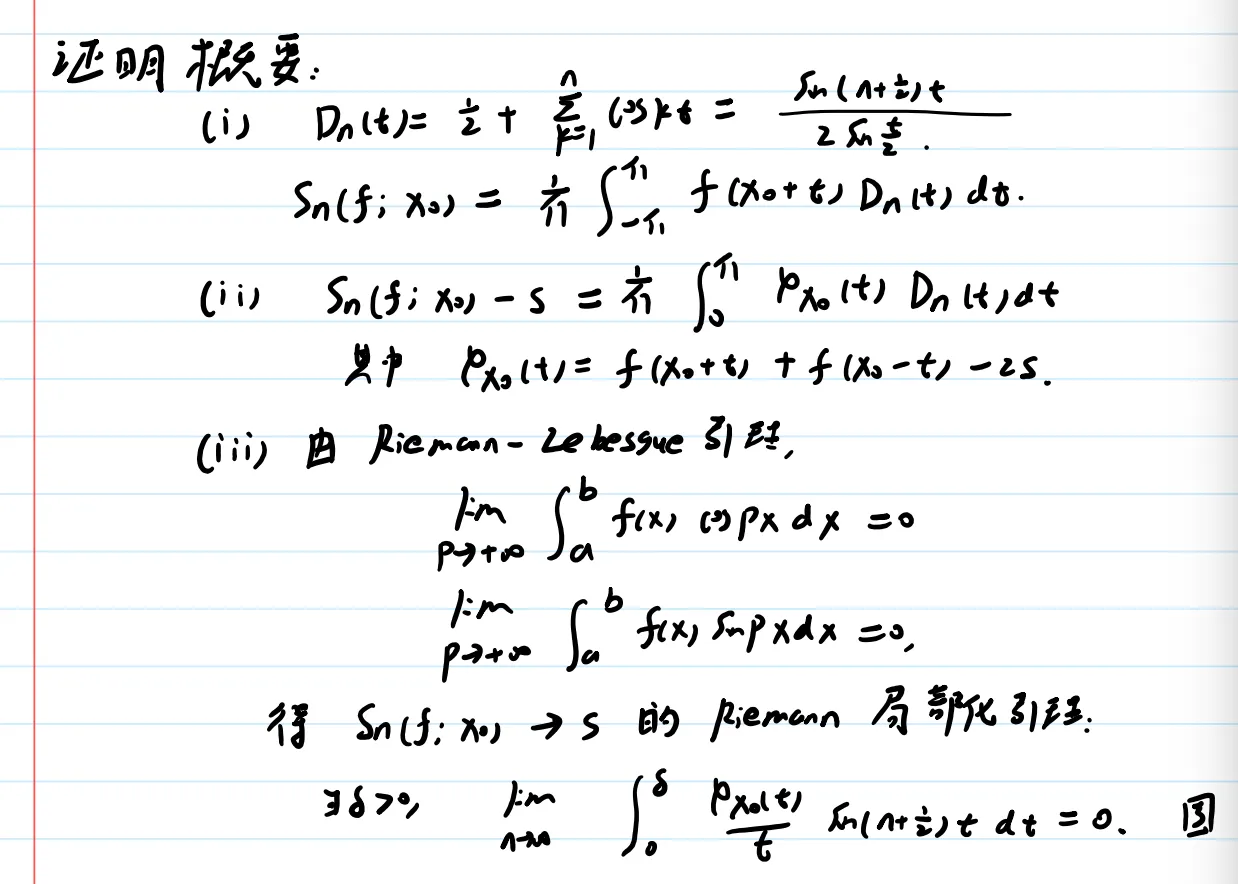 证明概要:
(i) Dₙ(t) = 1/2 + ∑_{k=1}^{n} cos kt = sin(n+1/2)t / (2 sin t/2).
Sₙ(f; x₀) = 1/π ∫_{-π}^{π} f(x₀+t) Dₙ(t) dt.
(ii) Sₙ(f; x₀) - s = 1/π ∫_{0}^{π} φ_{x₀}(t) Dₙ(t) dt
其中 φ_{x₀}(t) = f(x₀+t) + f(x₀-t) - 2s.
(iii) 由 Riemann-Lebesgue 引理,
lim_{p→+∞} ∫_{a}^{b} f(x) cos px dx = 0
lim_{p→+∞} ∫_{a}^{b} f(x) sin px dx = 0,
得 Sₙ(f; x₀) → s 的 Riemann 局部化引理:
∃δ>0, lim_{n→∞} ∫_{0}^{δ} φ_{x₀}(t)/t sin(n+1/2)t dt = 0.